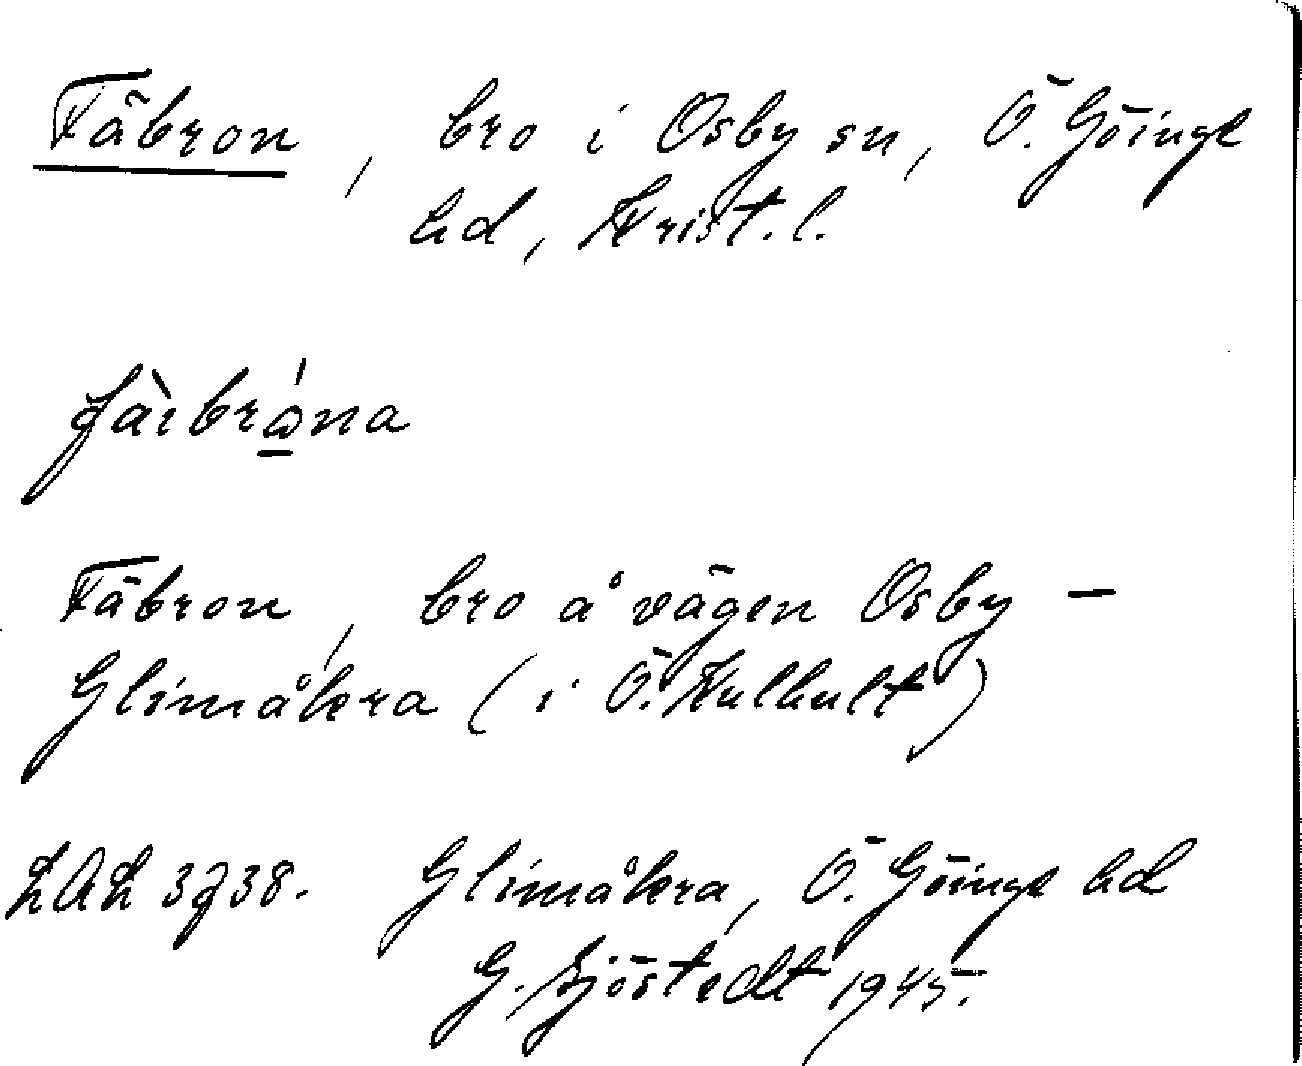 Fäbron, bro i Osby sn, Ö. Göinge
hd, Krist. l.
Fäbron, bro å vägen Osby –
Glimåkra (i Ö. Kulhult)
LAL 3738. Glimåkra, Ö. Göinge hd
G. Sjöstedt 1945.